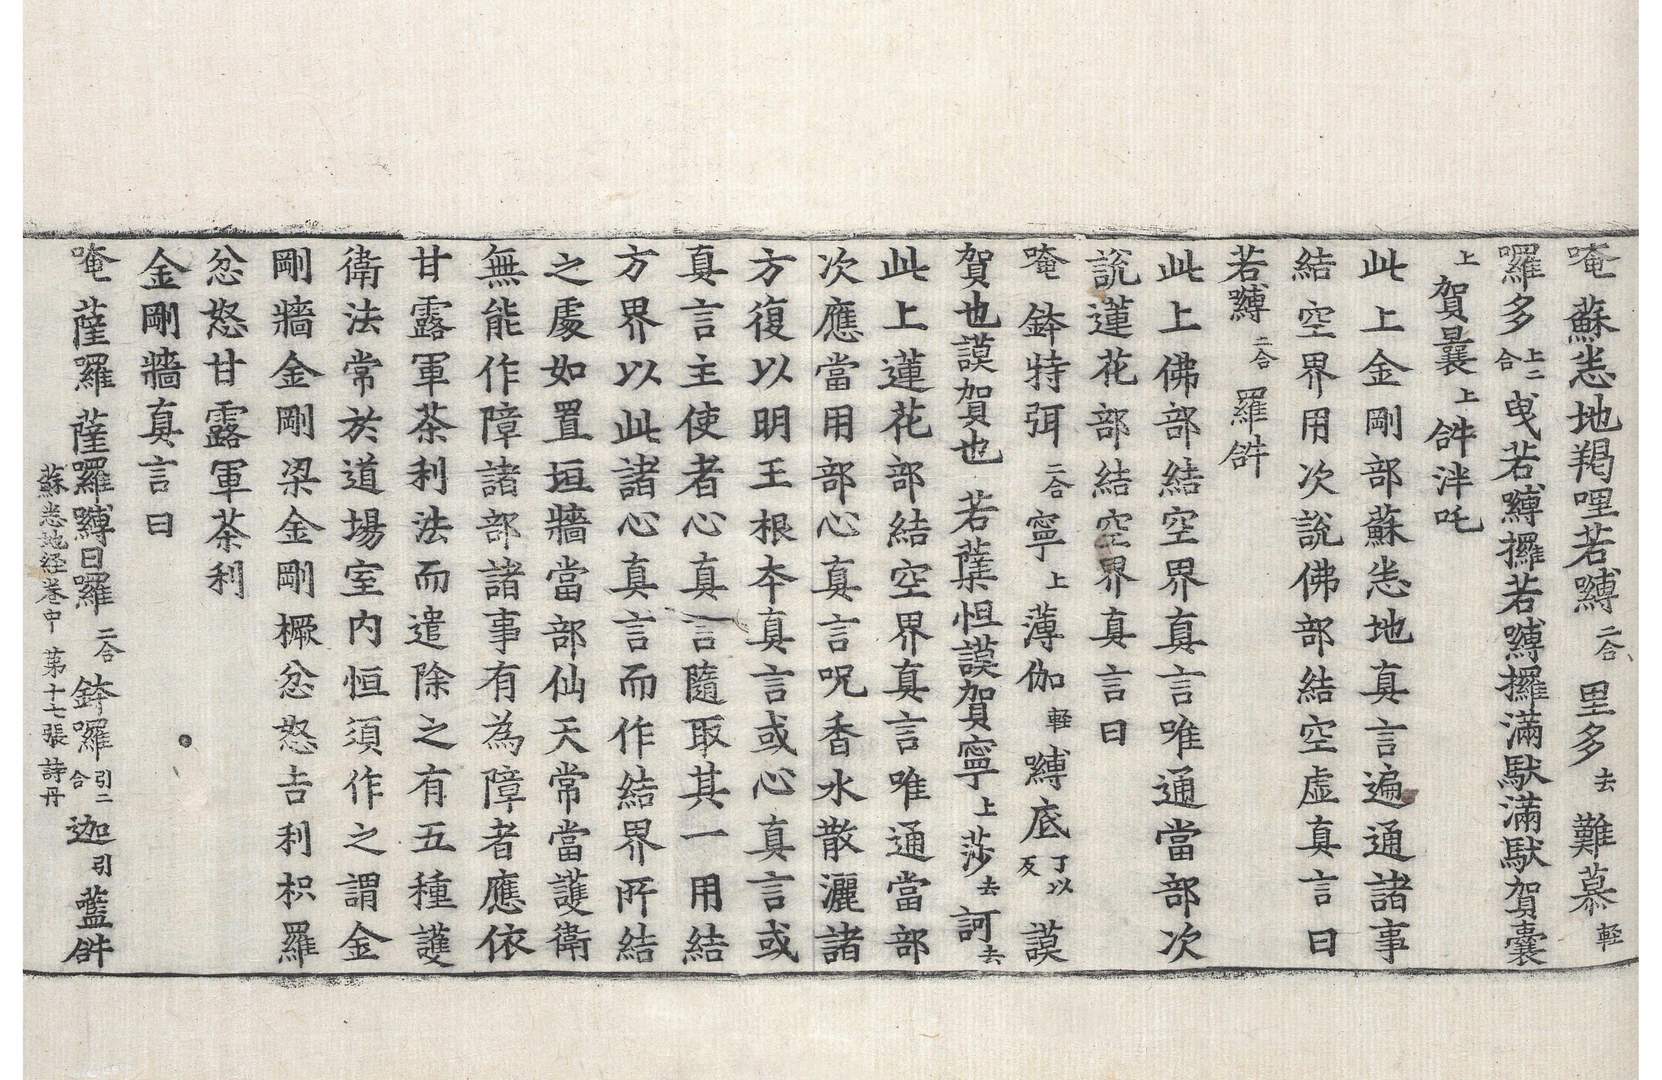 唵蘇悉地羯哩若嚩二合里多去難慕軽
囉多上二合曳若嚩攞若嚩攞滿馱滿馱賀囊
上賀曩上𤙖泮吒
此上金剛部蘇悉地真言遍通諸事
結空界用次說佛部結空虛真言曰
若嚩二合羅𤙖
此上佛部結空界真言唯通當部次
說蓮花部結空界真言曰
唵鉢特弭二合寧上薄伽軽嚩底丁以反謨
賀也謨賀也若蘖怛謨賀寧上莎去訶去
此上蓮花部結空界真言唯通當部
次應當用部心真言呪香水散灑諸
方復以明王根本真言或心真言或
真言主使者心真言隨取其一用結
方界以此諸心真言而作結界所結
之處如置垣牆當部仙天常當護衛
無能作障諸部諸事有為障者應依
甘露軍荼利法而遣除之有五種護
衛法常於道場室內恒須作之謂金
剛牆金剛梁金剛橛忿怒吉利枳羅
忿怒甘露軍荼利
金剛牆真言曰
唵薩囉薩囉嚩日囉二合鉢囉引二合迦引藍𤙖
蘇悉地経卷中 苐十七張 詩丹